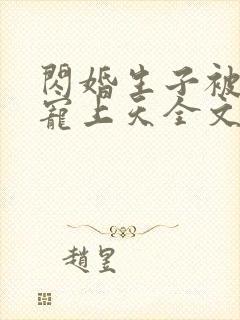 閃婚生子被
寵上天全文
趙昱